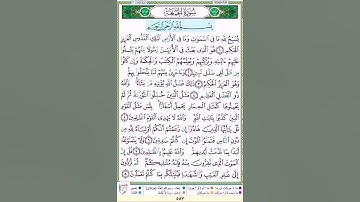 سُورَةُ الْجُمُعَةِ
بِسْمِ اللَّهِ الرَّحْمَٰنِ الرَّحِيمِ
يُسَبِّحُ لِلَّهِ مَا فِي السَّمَٰوَٰتِ وَمَا فِي الْأَرْضِ الْمَلِكِ الْقُدُّوسِ الْعَزِيزِ
الْحَكِيمِ ١ هُوَ الَّذِي بَعَثَ فِي الْأُمِّيِّينَ رَسُولًا مِنْهُمْ يَتْلُوا
عَلَيْهِمْ آيَاتِهِ وَيُزَكِّيهِمْ وَيُعَلِّمُهُمُ الْكِتَٰبَ وَالْحِكْمَةَ وَإِنْ كَانُوا
مِنْ قَبْلُ لَفِي ضَلَٰلٍ مُبِينٍ ٢ وَآخَرِينَ مِنْهُمْ لَمَّا يَلْحَقُوا بِهِمْ
وَهُوَ الْعَزِيزُ الْحَكِيمُ ٣ ذَٰلِكَ فَضْلُ اللَّهِ يُؤْتِيهِ مَنْ يَشَاءُ وَاللَّهُ
ذُو الْفَضْلِ الْعَظِيمِ ٤ مَثَلُ الَّذِينَ حُمِّلُوا التَّوْرَىٰةَ ثُمَّ لَمْ
يَحْمِلُوهَا كَمَثَلِ الْحِمَارِ يَحْمِلُ أَسْفَارًا بِئْسَ مَثَلُ الْقَوْمِ الَّذِينَ
كَذَّبُوا بِآيَاتِ اللَّهِ وَاللَّهُ لَا يَهْدِي الْقَوْمَ الظَّٰلِمِينَ ٥
قُلْ يَٰأَيُّهَا الَّذِينَ هَادُوا إِنْ زَعَمْتُمْ أَنَّكُمْ أَوْلِيَاءُ لِلَّهِ مِنْ دُونِ
النَّاسِ فَتَمَنَّوُا الْمَوْتَ إِنْ كُنْتُمْ صَٰدِقِينَ ٦ وَلَا يَتَمَنَّوْنَهُ
أَبَدًا بِمَا قَدَّمَتْ أَيْدِيهِمْ وَاللَّهُ عَلِيمٌ بِالظَّٰلِمِينَ ٧ قُلْ إِنَّ
الْمَوْتَ الَّذِي تَفِرُّونَ مِنْهُ فَإِنَّهُ مُلَٰقِيكُمْ ثُمَّ تُرَدُّونَ
إِلَىٰ عَٰلِمِ الْغَيْبِ وَالشَّهَٰدَةِ فَيُنَبِّئُكُمْ بِمَا كُنْتُمْ تَعْمَلُونَ ٨
٥٥٣